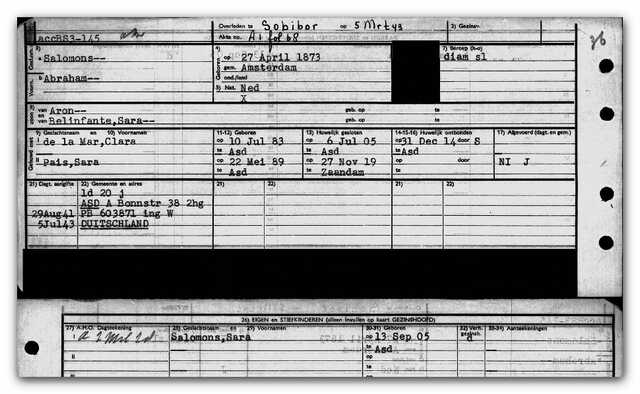 accBS3-145
Overleden te Sobibor op 5 Mrt 43
2) Gezinsv.
Akte no. A1 fol 68
36
3)
Salomons--
4)
op 27 April 1873
gem. Amsterdam
7) Beroep (h-o)
diam sl
Abraham--
ond./land
5) Nat. Ned
X
8) van Aron--
en
van Belinfante,Sara--
geb. op
geb. op
9) Geslachtsnaam en 10) Voornamen
11-12) Geboren
13) Huwelijk gesloten
14-15-16) Huwelijk ontbonden
17) Afgevoerd (dagt. en gem.)
I de la Mar,Clara
op 10 Jul 83
te Asd
op 6 Jul 05
te Asd
op 31 Dec 14 door S
te Asd
II Pais,Sara
op 22 Mei 89
te Asd
op 27 Nov 19
te Zaandam
op door
te
NI J
21) Dagt. aangifte
22) Gemeente en adres
21)
22)
21)
22)
ld 20 j
ASD A Bonnstr 38 2hg
29Aug41 PB 603871 ing W
5Jul43 DUITSCHLAND
26) EIGEN en STIEFKINDEREN (alleen invullen op kaart GEZINSHOOFD)
27) A.H.O. Dagteekening
28) Geslachtsnaam en 29) Voornamen
30-31) Geboren
32) Verh. gezinsh.
33-34) Aanteekeningen
I
Salomons,Sara
op 13 Sep 05
te Asd
d
II
op
te